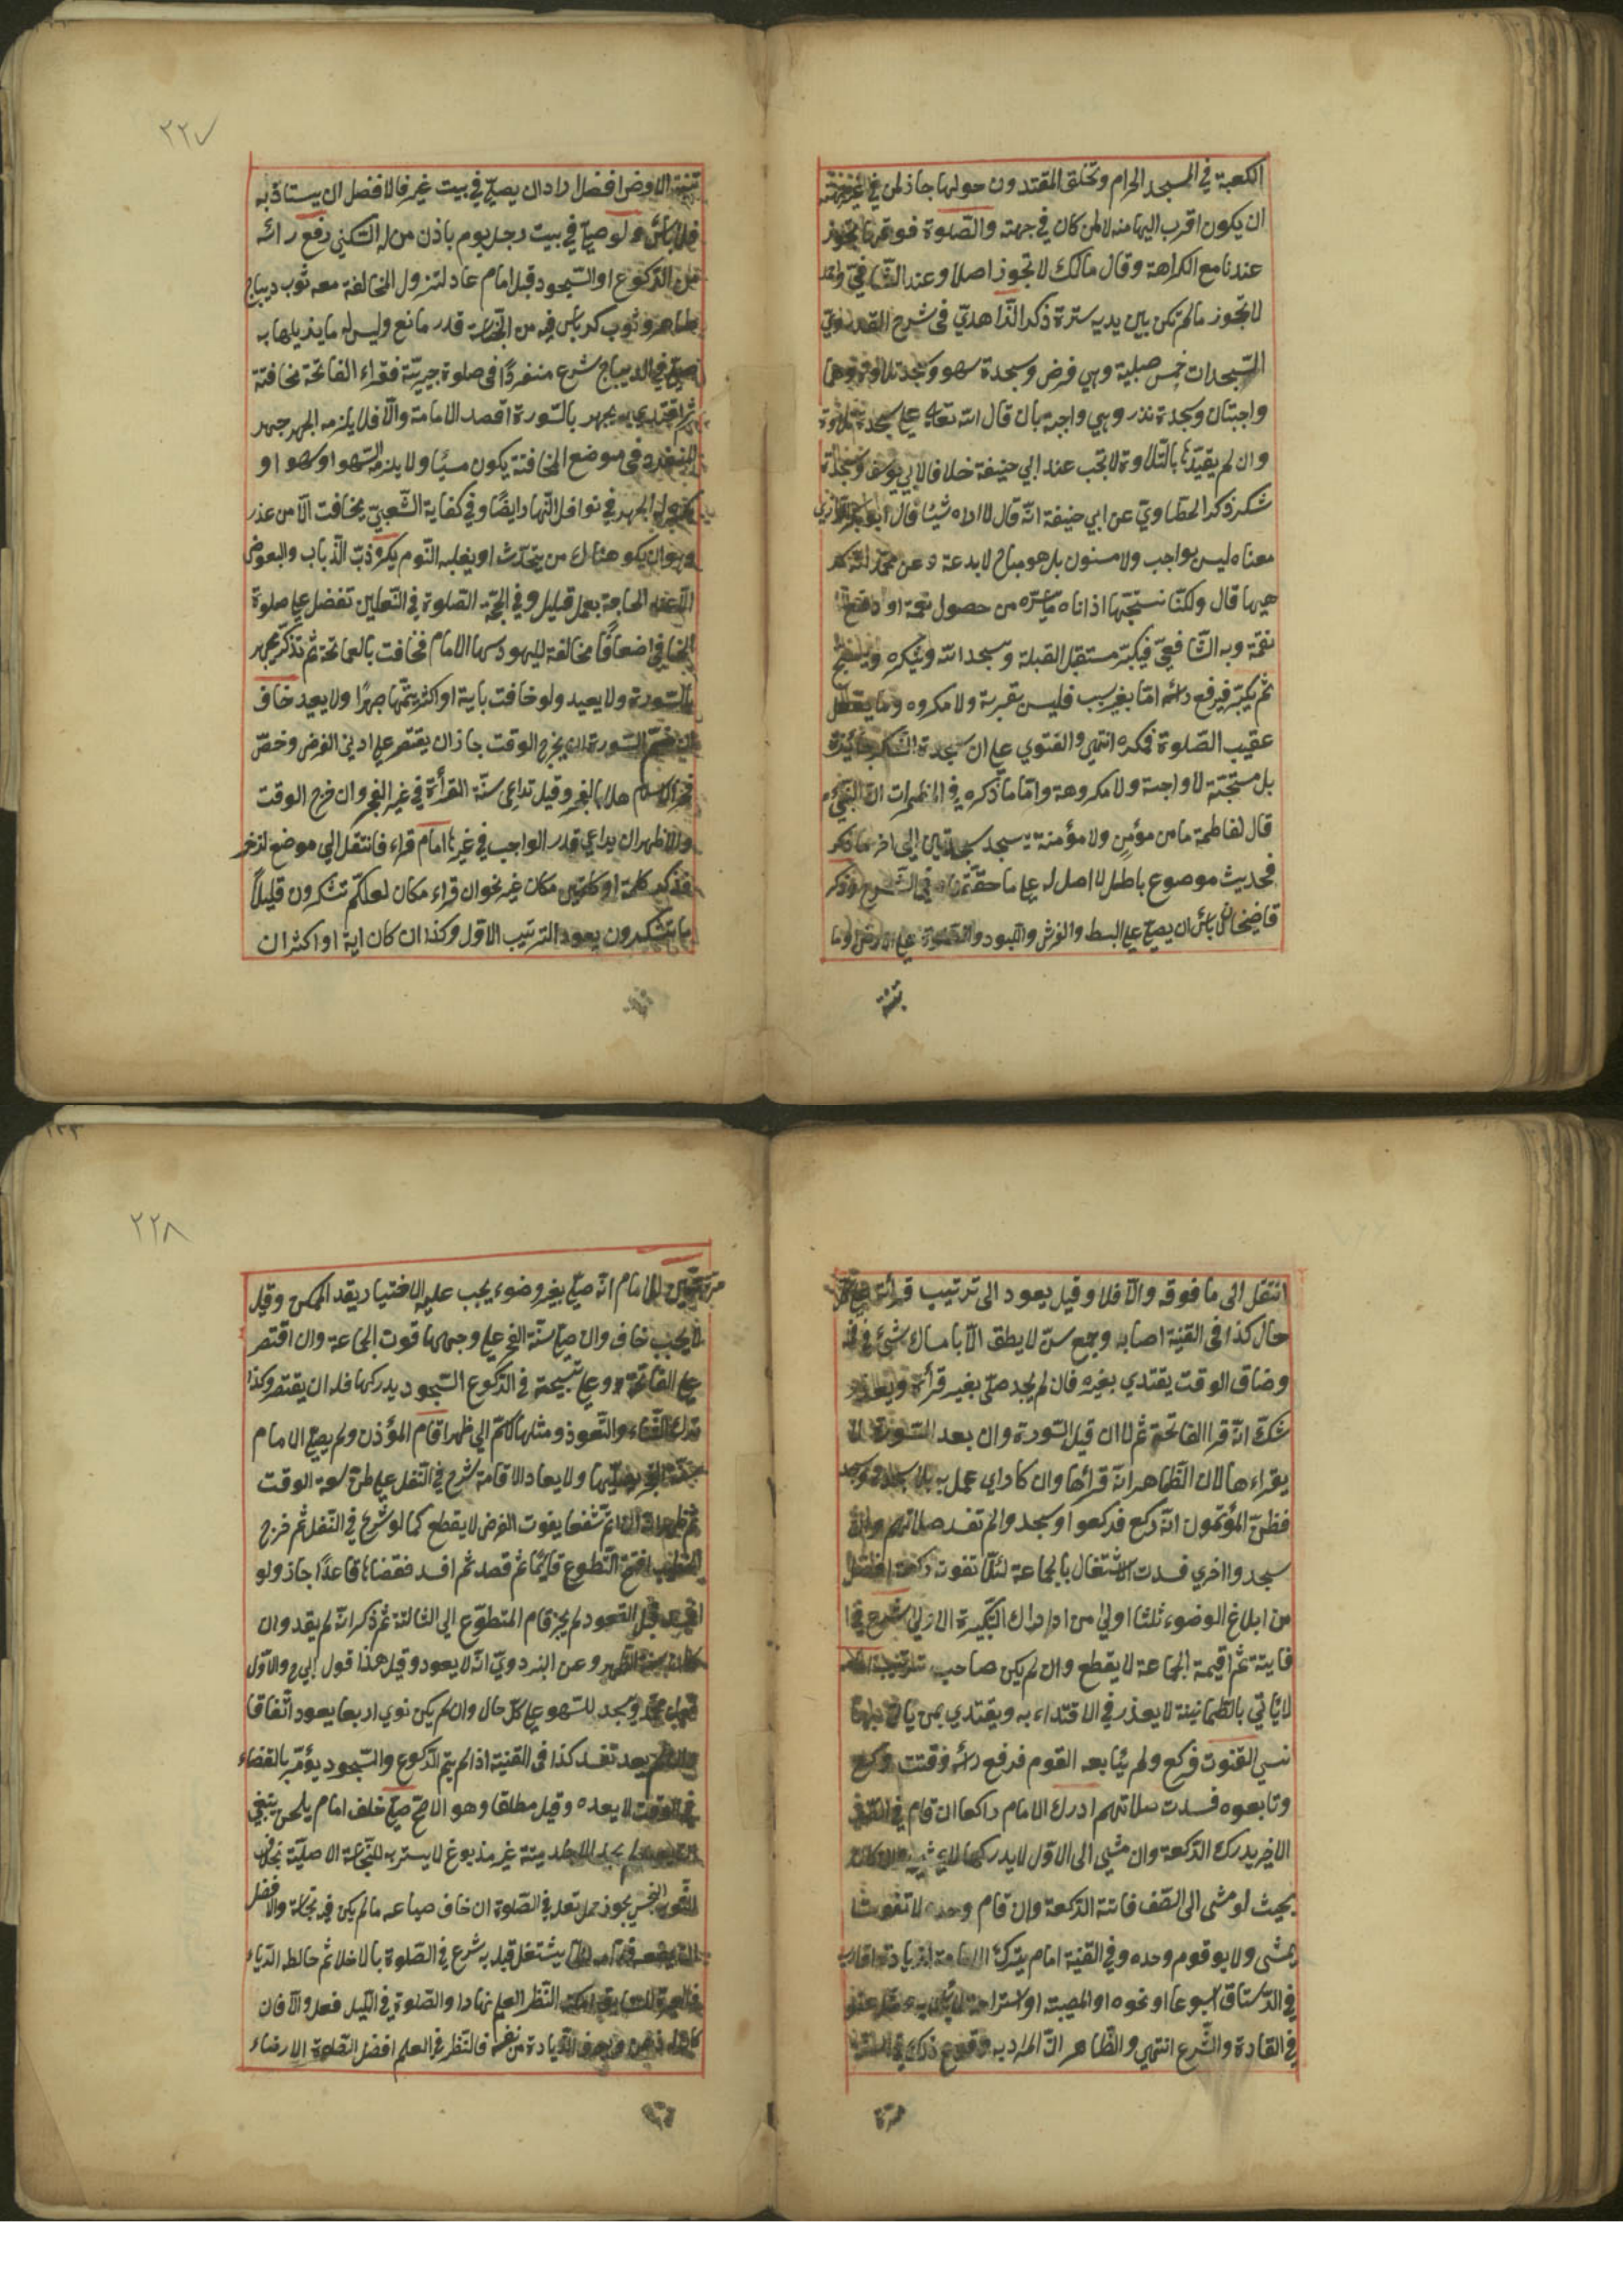 الكعبة في المسجد الحرام وتحلق المقتدون حولها جاز لمن في غير جهته
ان يكون اقرب اليها منه لا لمن كان في جهته والصلوة فوقها تجوز
عندنا مع الكراهة وقال مالك لا تجوز اصلا وعند الشافعي
لا تجوز ما لم تكن بين يديه سترة ذكر الزاهدي في شرح القدوري
السجدات خمس صلبية وهي فرض وسجدة سهو وسجدة تلاوة وهما
واجبتان وسجدة نذر وهي واجبة بان قال لله تعالى علي سجدة تلاوة
وان لم يقيدها بالتلاوة لا تجب عند ابي حنيفة خلافا لابي يوسف وسجدة
شكر ذكر الطحاوي عن ابي حنيفة انه قال لا اراه شيئا قال ابو بكر الرازي
معناه ليس بواجب ولا مسنون بل هو مباح لا بدعة وعن محمد انه كر
هيها قال ولكنا نستحبها اذا اتاه ما يسره من حصول نعمة او دفع
نقمة وبه الشافعي فيكبر مستقبل القبلة ويسجد الله ويشكره ويسبح
ثم يكبر فيرفع راسه اما بغير سبب فليس بقربة ولا مكروه وما يفعل
عقيب الصلوة فكره انتهى والفتوي علي ان سجدة الشكر جائزة
بل مستحبة لا واجبة ولا مكروهة واما ما ذكره في المضمرات ان النبي
قال لفاطمة ما من مؤمن ولا مؤمنة يسجد سجدتين الى اخر ما ذكر
فحديث موصوع باطل لا اصل له علي ما حققناه في الشرح وذكر
قاضيخان لا باس ان يصلي علي البسط والفرش واللبود والصلوة علي الارض وما
تنبته
٢٢٧
تنبته الارض افضل اراد ان يصلي في بيت غيره فالافضل ان يستاذنه
فلا باس ولو صلي في بيت رجل يوم باذن من له السكني رفع راسه
قبل الركوع او السجود قبل امام عاد لتزول المخالفة معه ثوب ديباج
طاهر وثوب كرباس فيه من النجاسة قدر مانع وليس له ما يزيلها به
يصلي في الديباج شرع منفردا في صلوة جهرية فقراء الفاتحة مخافتة
ثم اقتدي به يجهر بالسورة ان قصد الامامة والا فلا يلزمه الجهر جهر
المنفرد في موضع المخافتة يكون مسيئا ولا يلزمه السهو او سهوا و
الجهر في نوافل النهار ايضا وفي كفاية الشعبي يخافت الا من عذر
وهو ان يكو هناك من يتحدث او يغلبه النوم يكره ذب الذباب والبعوض
الا عند الحاجة بعمل قليل وفي الحجة الصلوة في النعلين تفضل علي صلوة
الحافي اضعافا مخالفة لليهود سها الامام فخافت بالفاتحة ثم تذكر يجهر
بالسورة ولا يعيد ولو خافت باية او اكثر يتمها جهرا ولا يعيد خاف
السورة ان يخرج الوقت جاز ان يقتصر علي ادني الفرض وخص
وقيل تداعي سنة القرأة في غير الفجر وان خرج الوقت
والاظهر ان يراعي قدر الواجب في غيرها امام قراء فانتقل الي موضع اخر
فذكر كلمة او كلمتين مكان غيره نحو ان قراء مكان لعلكم تشكرون قليلا
ما تشكرون يعود الترتيب الاول وكذا ان كان اية او اكثر ان
انتقل الى ما فوقه والا فلا وقيل يعود الى ترتيب قرأته علي كل
حال كذا في القنية اصابه وجع سن لا يطق الا بامساك شيء في فمه
وضاق الوقت يقتدي بغيره فان لم يجد صلى بغير قرأة ويعذر
شك انه قرا الفاتحة ثم لا ان قبل السورة وان بعد السورة لا
يقراءها لان الظاهر انه قرأها وان كا راي عمل به
فظن المؤتمون انه ركع فركعوا وسجدوا لم تفسد صلاتهم وان
سجدوا اخري فسدت الاشتغال بالجماعة لئلا تفوت ركعة افضل
من ابلاغ الوضوء ثلثا اولي من ادراك التكبيرة الاولي شرع في
فايتة ثم اقيمة الجماعة لا يقطع وان لم يكن صاحب ترتيب
لا ياتي بالطمانينة لا يعذر في الاقتداء به ويقتدي بمن ياتي بها
نسي القنوت فركع ولم يتابعه القوم فرفع راسه فقنت وركع
وتابعوه فسدت سلاتهم ادرك الامام راكعا ان قام في الصف
الاخير يدرك الركعة وان مشي الى الاول لا يدركها لا يمشي وان كان
بحيث لو مشى الى الصف فاتته الركعة وان قام وحده لا تفوت
يمشى ولا يوقوم وحده وفي القنية امام يترك الامامة لزيارة اقارب
في الرستاق اسبوعا او نحوه او لمصيبة او لاستراحة لا باس به ومثله عفو
في العادة والشرع انتهي والظاهر ان المراد به وقوع ذلك في السنة
مرة
١٢٣
٢٢٨
للامام انه صلي بغير وضوء يجب عليه الاختيار بقدر الممكن وقيل
لا يجب خاف وان صلي سنة الفجر علي وجهها فوت الجماعة وان اقتصر
علي الفاتحة وعلي تسبيحة في الركوع السجود يدركها فله ان يقتصر وكذا
ترك الثناء والتعوذ ومثلها الي ظهر اقام المؤذن ولم يصلي الامام
سنة الفجر يصليها ولا يعاد الاقامة شرع في النفل علي ظن سعة الوقت
ثم ظهر انه ان اتم شفعا يفوت الفرض لا يقطع كما لو شرع في النفل ثم خرج
الخطيب افتتح التطوع قائما ثم قعد ثم افسد فقضاها قاعدا جاز ولو
القعود لم يجز قام المتطوع الي الثالثة ثم ذكر انه لم يقعد وان
الظهر وعن البزدوي انه لا يعود وقيل هذا قول ابي ح والاول
قول محمد ويسجد للسهو علي كل حال وان لم يكن نوي اربعا يعود اتفاقا
وان لم يعد تفسد كذا في القنية اذا لم يتم الركوع والسجود يؤمر بالقضاء
في الوقت لا بعده وقيل مطلقا وهو الاصح صلي خلف امام يلحن ينبغي
لم يجد الا جلد ميتة غير مذبوغ لا يستر به للنجاسة الاصلية بخلاف
الثوب النجس يجوز حمل نعله في الصلوة ان خاف صياعه ما لم يكن فيه نجاسة والافضل
ان يضعه قدامه لئلا يشتغل قلبه شرع في الصلوة بالاخلاص ثم خالطه الرياء
فالعبرة للسابق امكنه النظر العلم نهارا والصلوة في الليل فعل والا فان
كان له ذهن ويعرف الزيادة من نفسه فالنظر في العلم افضل الصلوة لارضاء